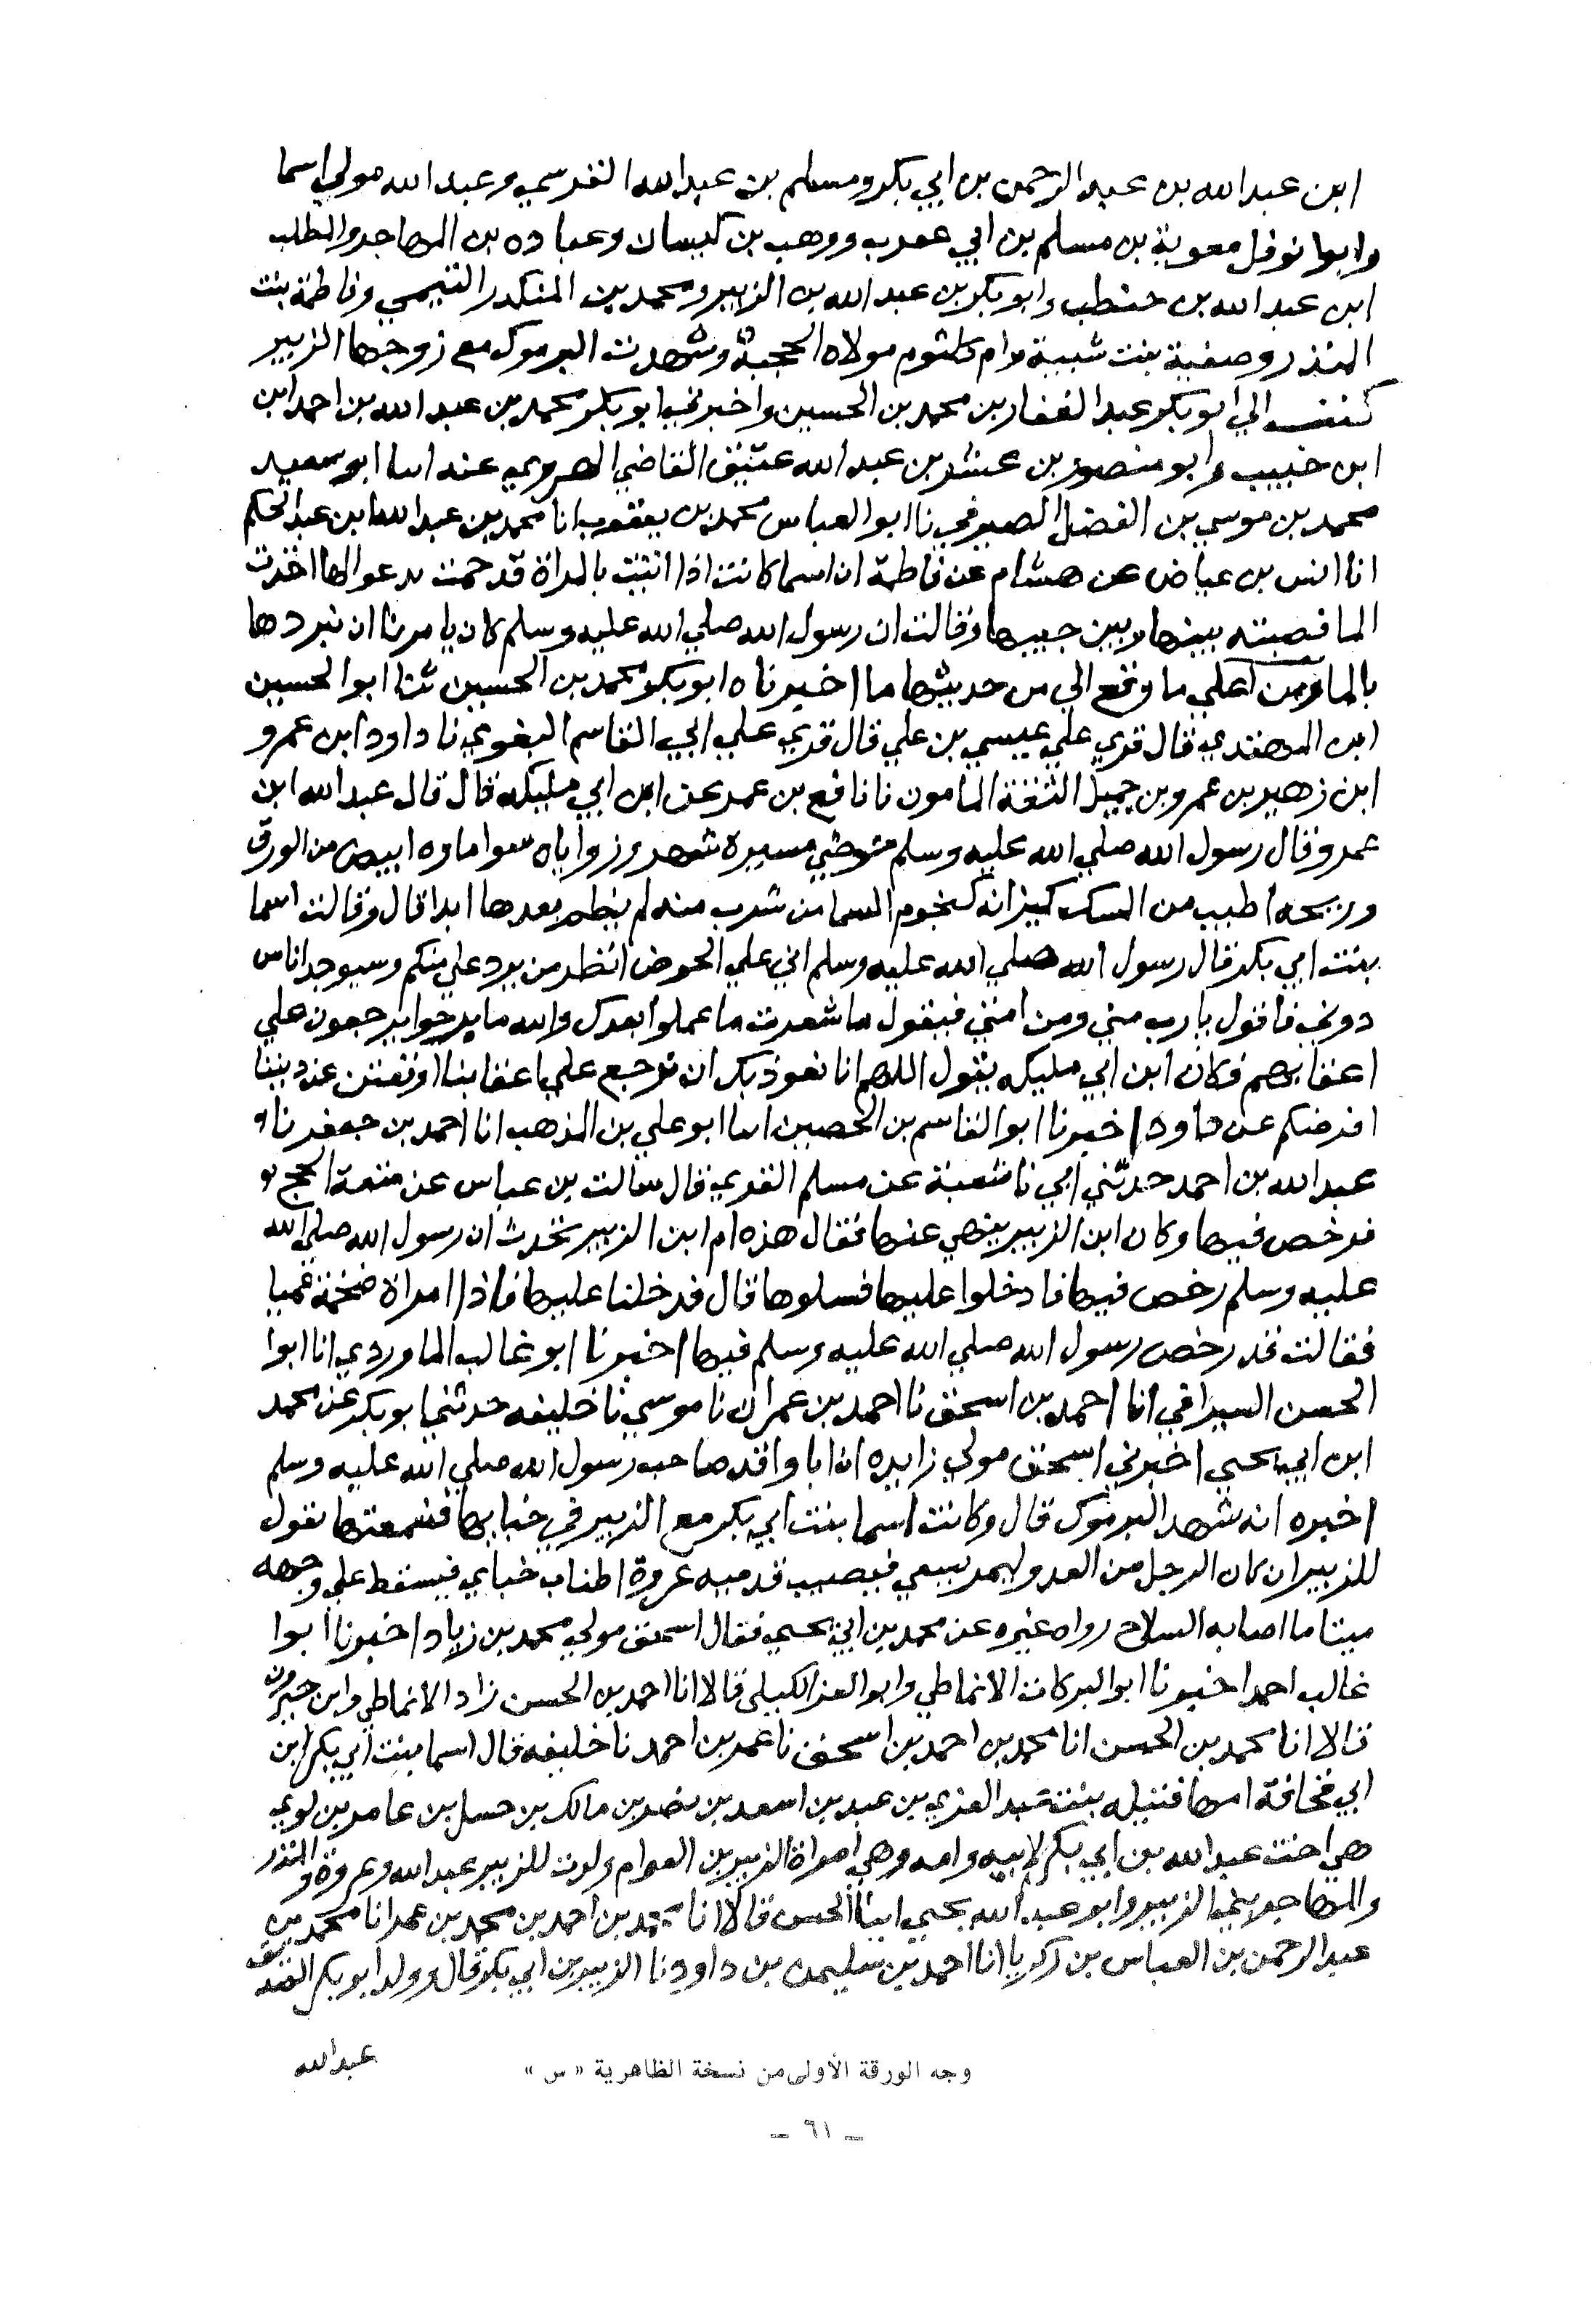 ابن عبد الله بن عبد الرحمن بن ابي بكر ومسلم بن عبد الله القرشي وعبد الله مولي اسما
وابوا نوفل معوية بن مسلم بن ابي عقرب ووهب بن كيسان وعباده بن المهاجر والمطلب
ابن عبد الله بن حنطب وابو بكر بن عبد الله بن الزبير ومحمد بن المنكدر التيمي وفاطمة بنت
المنذر وصفية بنت شيبة وام كلثوم مولاه الحجبة وشهدت اليرموك مع زوجها الزبير
كتب الي ابو بكر عبد الغفار بن محمد بن الحسين واخبرني ابو بكر محمد بن عبد الله بن احمد ابن
ابن حبيب وابو منصور بن عبد الله عتيق القاضي الهروي عنه انا ابو سعيد
محمد بن موسي بن الفضل الصيرفي نا ابو العباس محمد بن يعقوب انا محمد بن عبد الله ابن عبد الحكم
انا انس بن عياض عن هشام عن فاطمة ان اسما كانت اذا اتيت بالمراة قد حمت تدعو الها اخذت
الما فصبته بينها وبين جيبها وقالت ان رسول الله صلي الله عليه وسلم كان يامرنا ان نبردها
بالما ومن اعلي ما وقع الي من حديثها ما اخبرناه ابو بكر محمد بن الحسين ثنا ابو الحسين
ابن المهتدي قال قري علي عيسي بن علي قال قري علي ابي القاسم البغوي نا داود ابن عمرو
ابن زهير بن عمرو بن جميل الثقة المامون نا نافع بن عمر عن ابن ابي مليكه قال قال عبد الله ابن
عمرو قال رسول الله صلي الله عليه وسلم حوضي مسيرة شهر وزواياه سوا ماوه ابيض من الورق
وريحه اطيب من المسك كيزانه كنجوم السما من شرب منه لم يظم بعدها ابدا قال وقالت اسما
بنت ابي بكر قال رسول الله صلي الله عليه وسلم اني علي الحوض انظر من يرد علي منكم وسيوجد اناس
دوني فاقول يارب مني ومن امتي فيقول ما شعرت ما عملوا بعدك والله ما برحوا يرجعون علي
اعقابهم فكان ابن ابي مليكه يقول اللهم انا نعوذ بك ان نرجع علي اعقابنا او نفتن عن ديننا
عن داود اخبرنا ابو القاسم بن الحصين انا ابو علي بن المذهب انا احمد بن جعفر نا
عبد الله بن احمد حدثني ابي نا شعبة عن مسلم القري قال سالت بن عباس عن متعة الحج
فرخص فيها وكان ابن الزبير ينهي عنها فقال هذه ام ابن الزبير تحدث ان رسول الله صلي الله
عليه وسلم رخص فيها فادخلوا عليها فسلوها قال فدخلنا عليها فاذا امراة ضخمة عميا
فقالت قد رخص رسول الله صلي الله عليه وسلم فيها اخبرنا ابو غالب الماوردي انا ابوا
الحسن السيرافي انا احمد بن اسحق نا احمد بن عمران نا موسي نا خليفه حدثني ابو بكر عن محمد
ابن ابي يحيي اخبرني اسحق مولي زايده ان ابا واقد صاحب رسول الله صلي الله عليه وسلم
اخبره انه شهد اليرموك قال وكانت اسما بنت ابي بكر مع الزبير في خبايها فسمعتها تقول
للزبير ان كان الرجل من العدو ليمر يسعي فيصيب قدميه عروة اطناب خباي فيسقط علي وجهه
ميتا ما اصابه السلاح رواه غيره عن محمد بن ابي يحيي فقال اسحق مولي محمد بن زياد اخبرنا ابوا
غالب احمد اخبرنا ابو البركات الانماطي وابو العز الكيلي قالا انا احمد بن الحسن زاد الانماطي وابن خيرون
قالا انا محمد بن الحسن انا محمد بن احمد بن اسحق نا عمر بن احمد نا خليفه قال اسما بنت ابي بكر ابن
ابي قحافة امها قتيله بنت عبد العزي بن عبد بن اسعد بن نصر بن مالك بن حسل بن عامر بن لوي
هي اخت عبد الله بن ابي بكر لابيه وامه وهي امراة الزبير بن العوام ولدت للزبير عبد الله وعروة والمنذر
والمهاجر بني الزبير وابو عبد الله يحيي ابنا الحسن قالا انا محمد بن احمد بن محمد بن عمر انا محمد بن
عبد الرحمن بن العباس بن زكريا انا احمد بن سليمن بن داود نا الزبير بن ابي بكر قال وولد ابو بكر الصديق
عبد الله
وجه الورقة الأولى من نسخة الظاهرية « س »
ـ ٦١ ـ